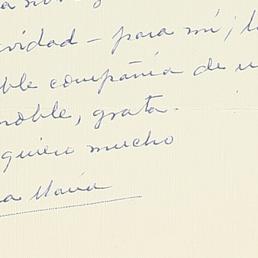 avidad - para mí; l
ble compañía de u
noble, grata.
quiero mucho
a María